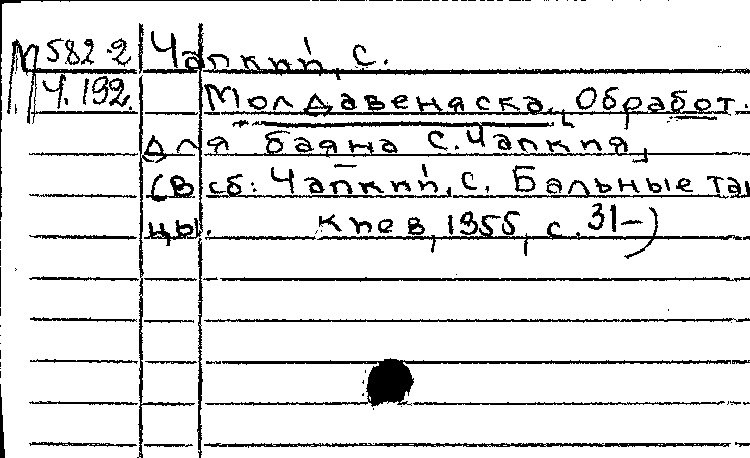 М582-2 Чапкий, С.
Ч.192. Молдавеняска. Обработ.
для баяна С. Чапкия,
(В сб: Чапкий, С. Бальные тан
цы. Киев, 1955, с. 31-)